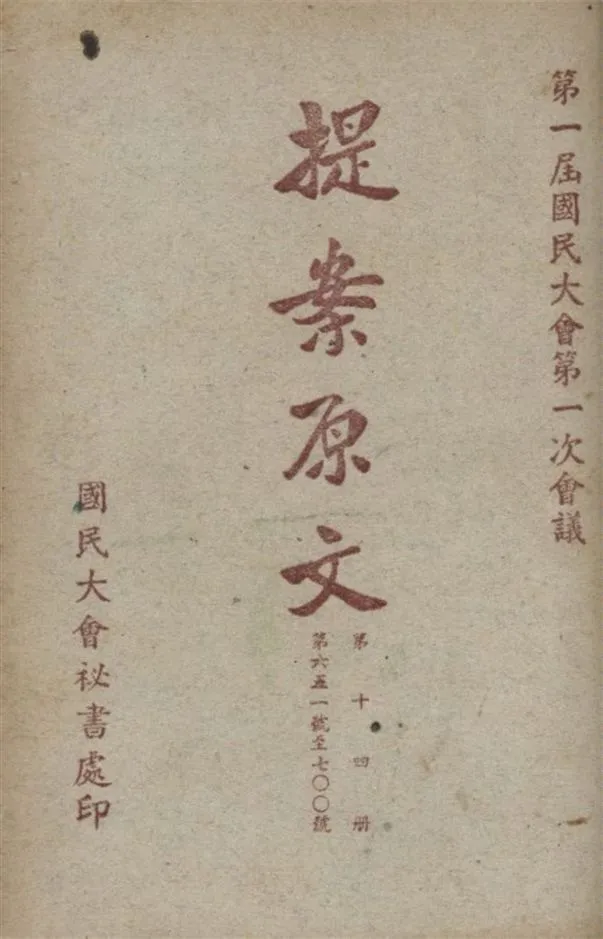 第一屆國民大會第一次會議
提案原文
第十四册
第六五一號至七〇〇號
國民大會祕書處印